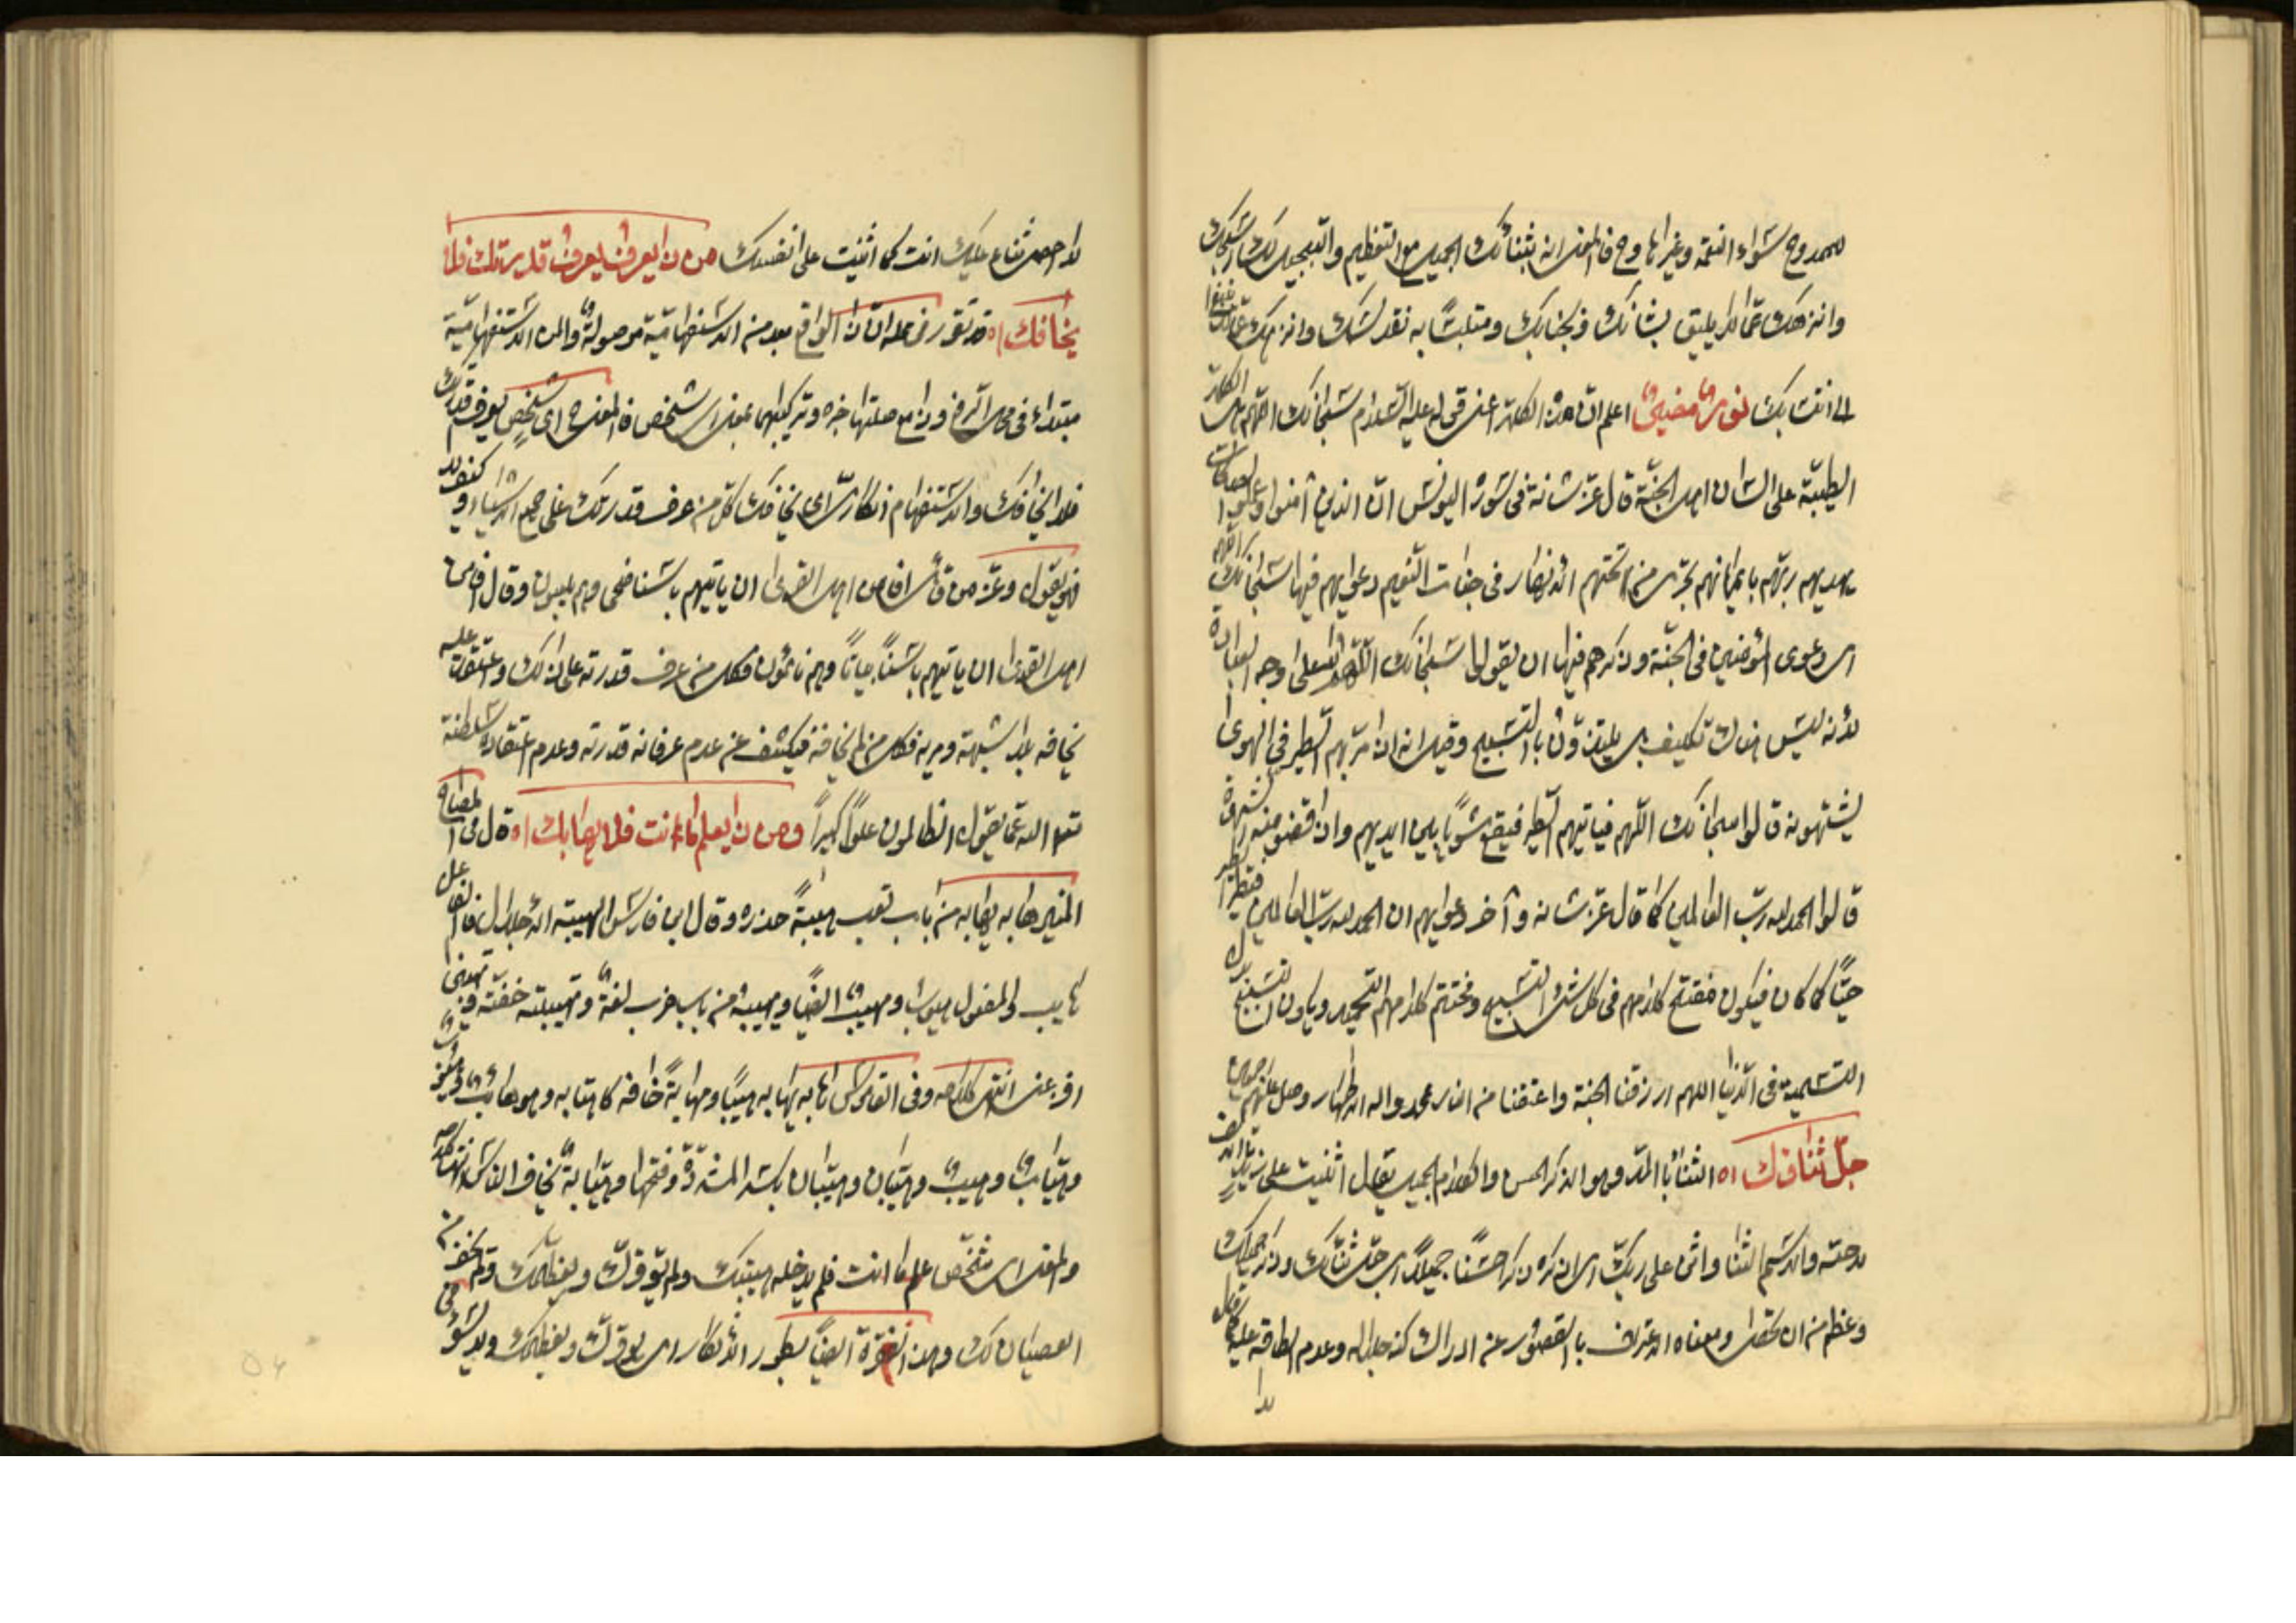 للممدوح سواء النعمة وغيرها وح فالمعنى انه بثنائك الجميل مع التعظيم والتبجيل لك اسبحك
وانزهك عما لا يليق بشانك وبجنابك ومتلبسًا به نقدسك وانزهك
الى انت بك نور مضيئ اعلم ان هذه الكلمة اعنى قوله عليه السلام سبحانك اللهم
الطيبة على لسان اهل الجنة قال عز شانه فى سورة اليونس ان الذين آمنوا وعملوا الصالحات
يهديهم ربهم بايمانهم تجرى من تحتهم الانهار فى جنات النعيم دعويهم فيها سبحانك اللهم
اى دعوى المؤمنين فى الجنة وذكرهم فيها ان يقولوا سبحانك اللهم لا على وجه العبادة
لانه ليس هناك تكليف بل يلتذون بالتسبيح وقيل انه اذا مر بهم الطير فى الهوى
يشتهونه قالوا سبحانك اللهم فياتيهم الطير فيقع مشويا بين ايديهم واذا قضوا منه الشهوة
قالوا الحمد لله رب العالمين فيطير الطير كما قال عز شانه وآخر دعويهم ان الحمد لله رب العالمين
حيًا كما كان فيكون مفتتح كلامهم فى كل شئ التسبيح ومختتم كلامهم التحميد ويكون التسبيح بدل
التسمية فى الدنيا اللهم ارزقنا الجنة واعتقنا من النار بمحمد واله الاطهار وصل عليهم
جل ثناؤك اه الثناء بالمد وهو الذكر الحسن والكلام الجميل يقال اثنيت على زيد
مدحته والاسم الثنا واثن على ربك اى اذكره ذكرا حسنًا جميلًا اى جل ثنائك وذكر جميلك
وعظم من ان يحصى ومعناه الاعتراف بالقصور عن ادراك كنه جلاله وعدم الطاقة عليه كما قال
لا
لا احصى ثناء عليك انت كما اثنيت على نفسك من ذا يعرف قدرتك فلا
يخافك اه قد تقرر فى محله ان ذا الواقع بعد من الاستفهامية موصولة والمن الاستفهامية
مبتداء فى محل الرفع وذا مع صلتها خبره وتركيبهما بمعنى اى شخص فالمعنى ح اى شخص يعرف قدرتك
فلا يخافك والاستفهام انكارى اى يخافك كل من عرف قدرتك على جميع الاشياء وكيف لا
فهو يقول وعز من قائل افامن اهل القرى ان ياتيهم باسنا ضحى وهم يلعبون وقال افامن
اهل القرى ان ياتيهم باسنا بياتًا وهم نائمون فكل من عرف قدرته على ذلك واعتقدت عليه
يخافه بلا شبهة ومرية فكل من لم يخافه فيكشف عن عدم عرفانه قدرته وعدم اعتقاده سلطنته
تعالى الله عما يقول الظالمون علوًا كبيرًا ومن ذا يعلم ما انت فلا يهابك اه قال فى المصباح
المنير هابه يهابه من باب تعب هيبة حذره وقال ابن فارس الهيبة الاجلال فالفاعل
هايب والمفعول مهيوب ومهيب ايضًا ويهيبه من باب ضرب لغة وتهيبته خفته وتهيبنى
افزعنى انتهى كلامه وفى القاموس هابه يهابه هيبًا ومهابة خافه كاهتابه وهو هائب
وهيّاب وهيب وهيّبان وهيبان بكسر المشددة وفتحها وهيّابة يخاف الناس انتهى كلامه
والمعنى اى شخص علم ما انت فلم يدخله هيبتك ولم يوقرك ويعظمك ولم يخف من
العصيان لك وهذه الفقرة ايضًا بطور الانكار اى يوقرك ويعظمك